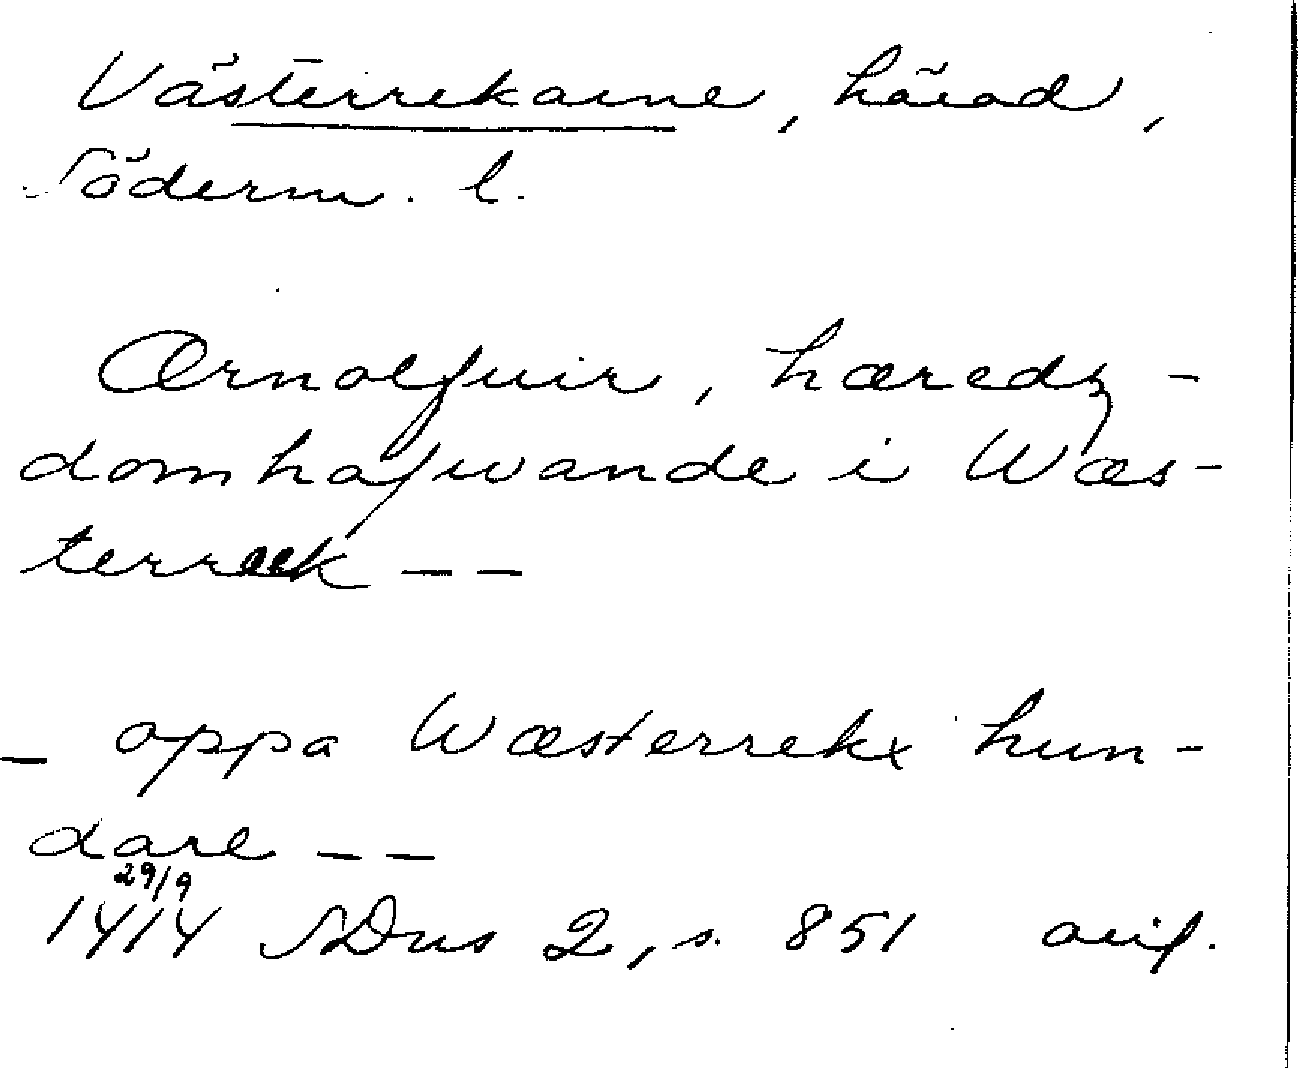 Västerrekarne, härad,
Söderm. l.
Ærnolfuir, hæredz-
domhafwande i Wæs-
terræk --
- oppa Wæsterrekx hun-
dare --
29/9
1414 SDns 2, s. 851 orig.